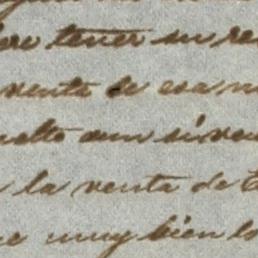 tener su re
venta de esa
uelto aun si ven
la venta de
muy bien lo